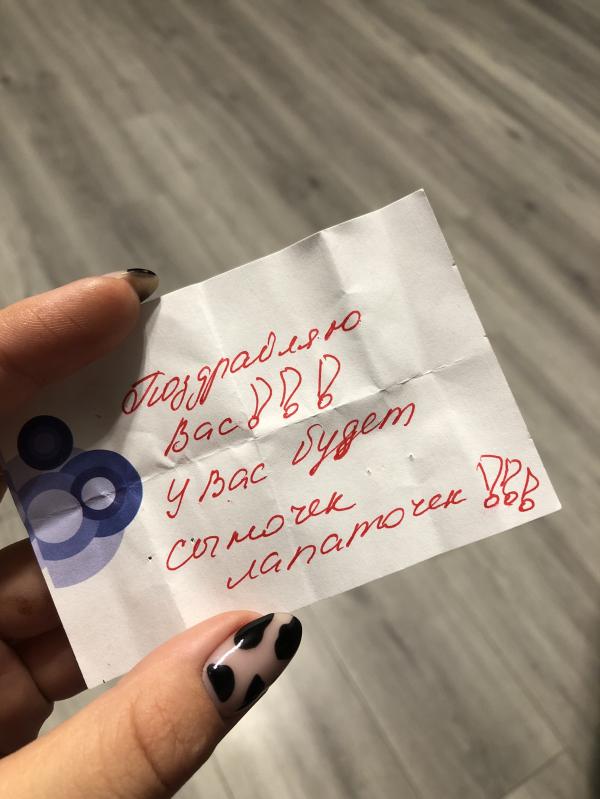 Поздравляю
Вас!!!
У Вас будет
сыночек
лапаточек !!!